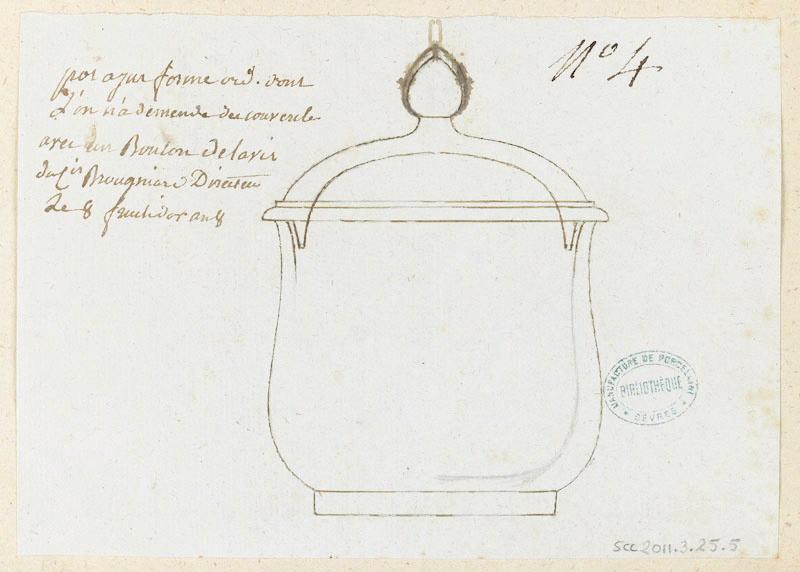 pot a jus forme ord. dont
L'on n'a demende du couvercle
avec un Bouton de lavis
du Cit Brougniard Directeur
Le 8 fructidor an 8
N° 4
MANUFACTURE DE PORCELAINE
BIBLIOTHÈQUE
* SÈVRES *
SCC2011.3.25.5